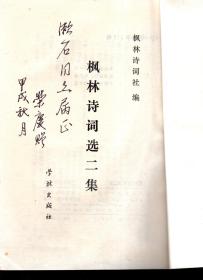 枫林诗词社 编
枫林诗词选二集
学林出版社
漱石同志届正
荣庆赠
甲戌秋月